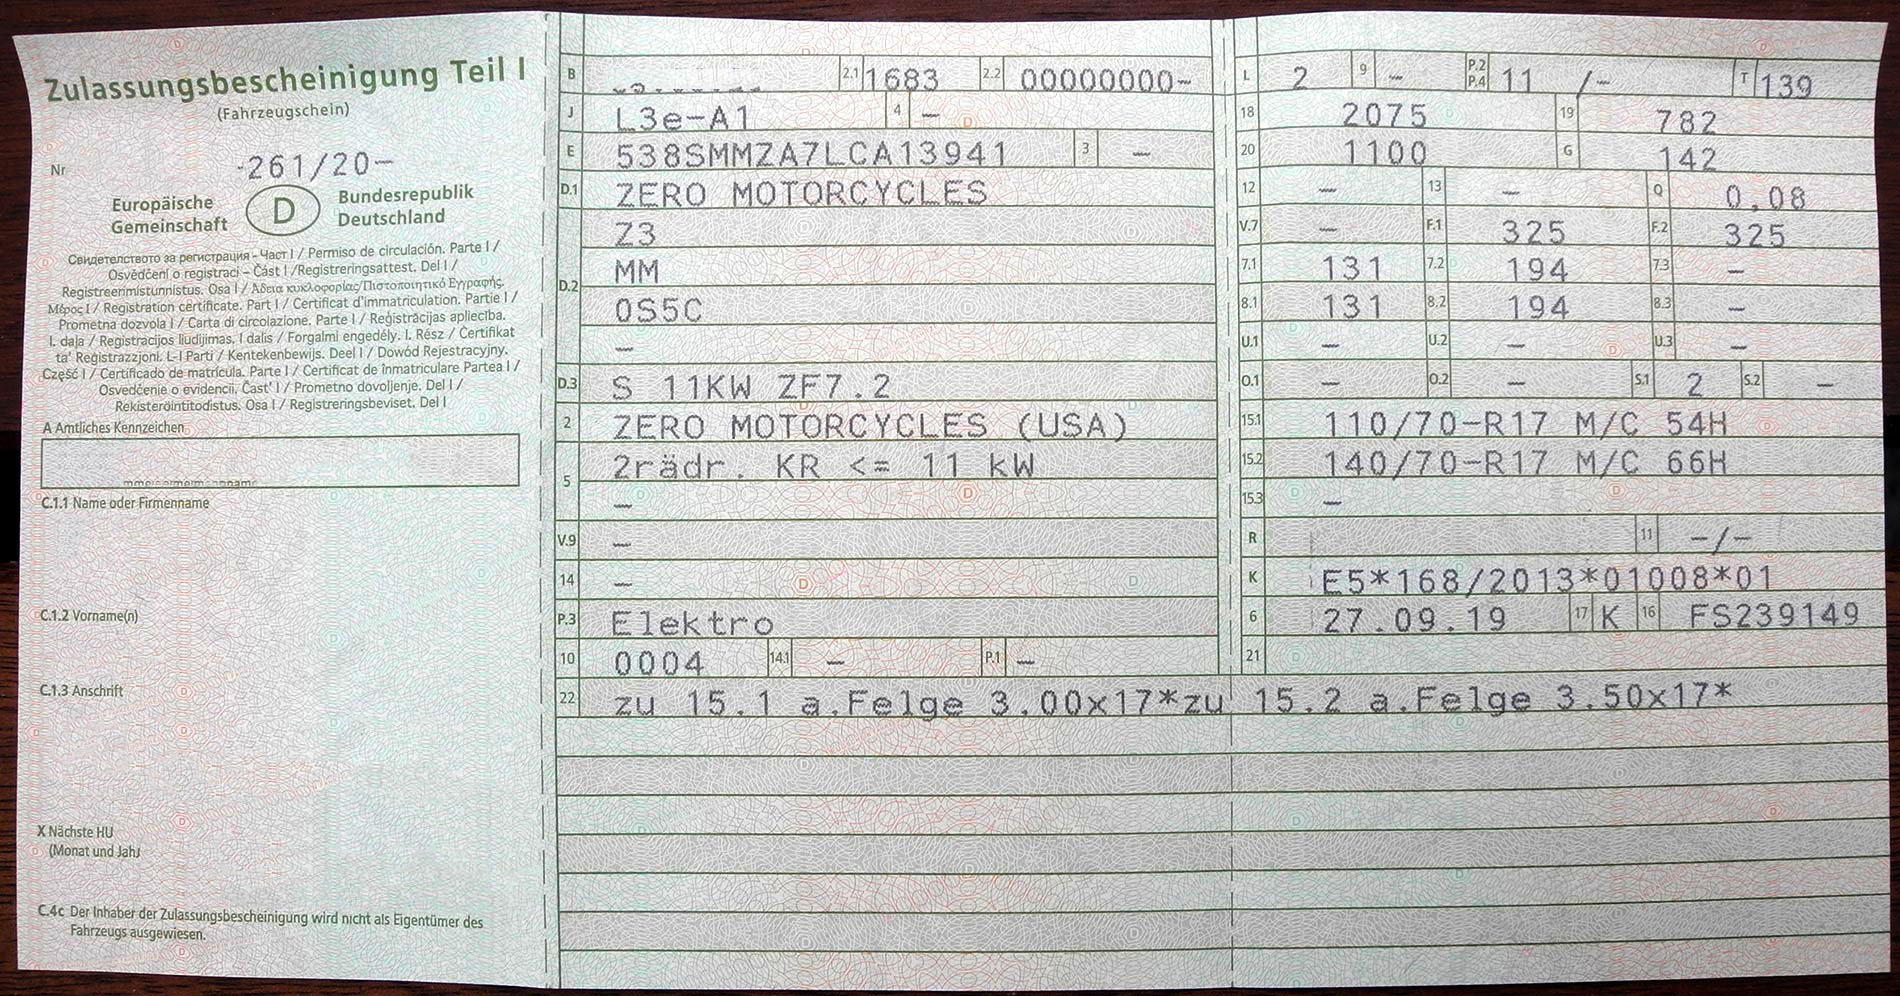 Zulassungsbescheinigung Teil I
(Fahrzeugschein)
Nr -261/20-
Europäische Gemeinschaft D Bundesrepublik Deutschland
Свидетелството за регистрация - Част I / Permiso de circulación. Parte I /
Osvědčení o registraci - Část I /Registreringsattest. Del I /
Registreerimistunnistus. Osa I / Άδεια κυκλοφορίας/Πιστοποιητικό Εγγραφής.
Μέρος I / Registration certificate. Part I / Certificat d'immatriculation. Partie I /
Prometna dozvola I / Carta di circolazione. Parte I / Reģistrācijas apliecība.
I. daļa / Registracijos liudijimas. I dalis / Forgalmi engedély. I. Rész / Ċertifikat
ta' Reġistrazzjoni. L-I Parti / Kentekenbewijs. Deel I / Dowód Rejestracyjny.
Część I / Certificado de matrícula. Parte I / Certificat de înmatriculare Partea I /
Osvedčenie o evidencii. Časť I / Prometno dovoljenje. Del I /
Rekisteröintitodistus. Osa I / Registreringsbeviset. Del I
A Amtliches Kennzeichen
C.1.1 Name oder Firmenname
C.1.2 Vorname(n)
C.1.3 Anschrift
X Nächste HU
(Monat und Jahr
C.4c Der Inhaber der Zulassungsbescheinigung wird nicht als Eigentümer des
Fahrzeugs ausgewiesen.
B 2.1 1683 2.2 00000000-
J L3e-A1 4 -
E 538SMMZA7LCA13941 3 -
D.1 ZERO MOTORCYCLES
D.2 Z3
MM
0S5C
-
D.3 S 11KW ZF7.2
2 ZERO MOTORCYCLES (USA)
5 2rädr. KR <= 11 kW
-
V.9 -
14 -
P.3 Elektro
10 0004 14.1 - P.1 -
L 2 9 - P.2 P.4 11 /- T 139
18 2075 19 782
20 1100 G 142
12 - 13 - Q 0,08
V.7 - F.1 325 F.2 325
7.1 131 7.2 194 7.3 -
8.1 131 8.2 194 8.3 -
U.1 - U.2 - U.3 -
O.1 - O.2 - S.1 2 S.2 -
15.1 110/70-R17 M/C 54H
15.2 140/70-R17 M/C 66H
15.3 -
R 11 -/-
K E5*168/2013*01008*01
6 27.09.19 17 K 16 FS239149
21
22 zu 15.1 a.Felge 3.00x17*zu 15.2 a.Felge 3.50x17*